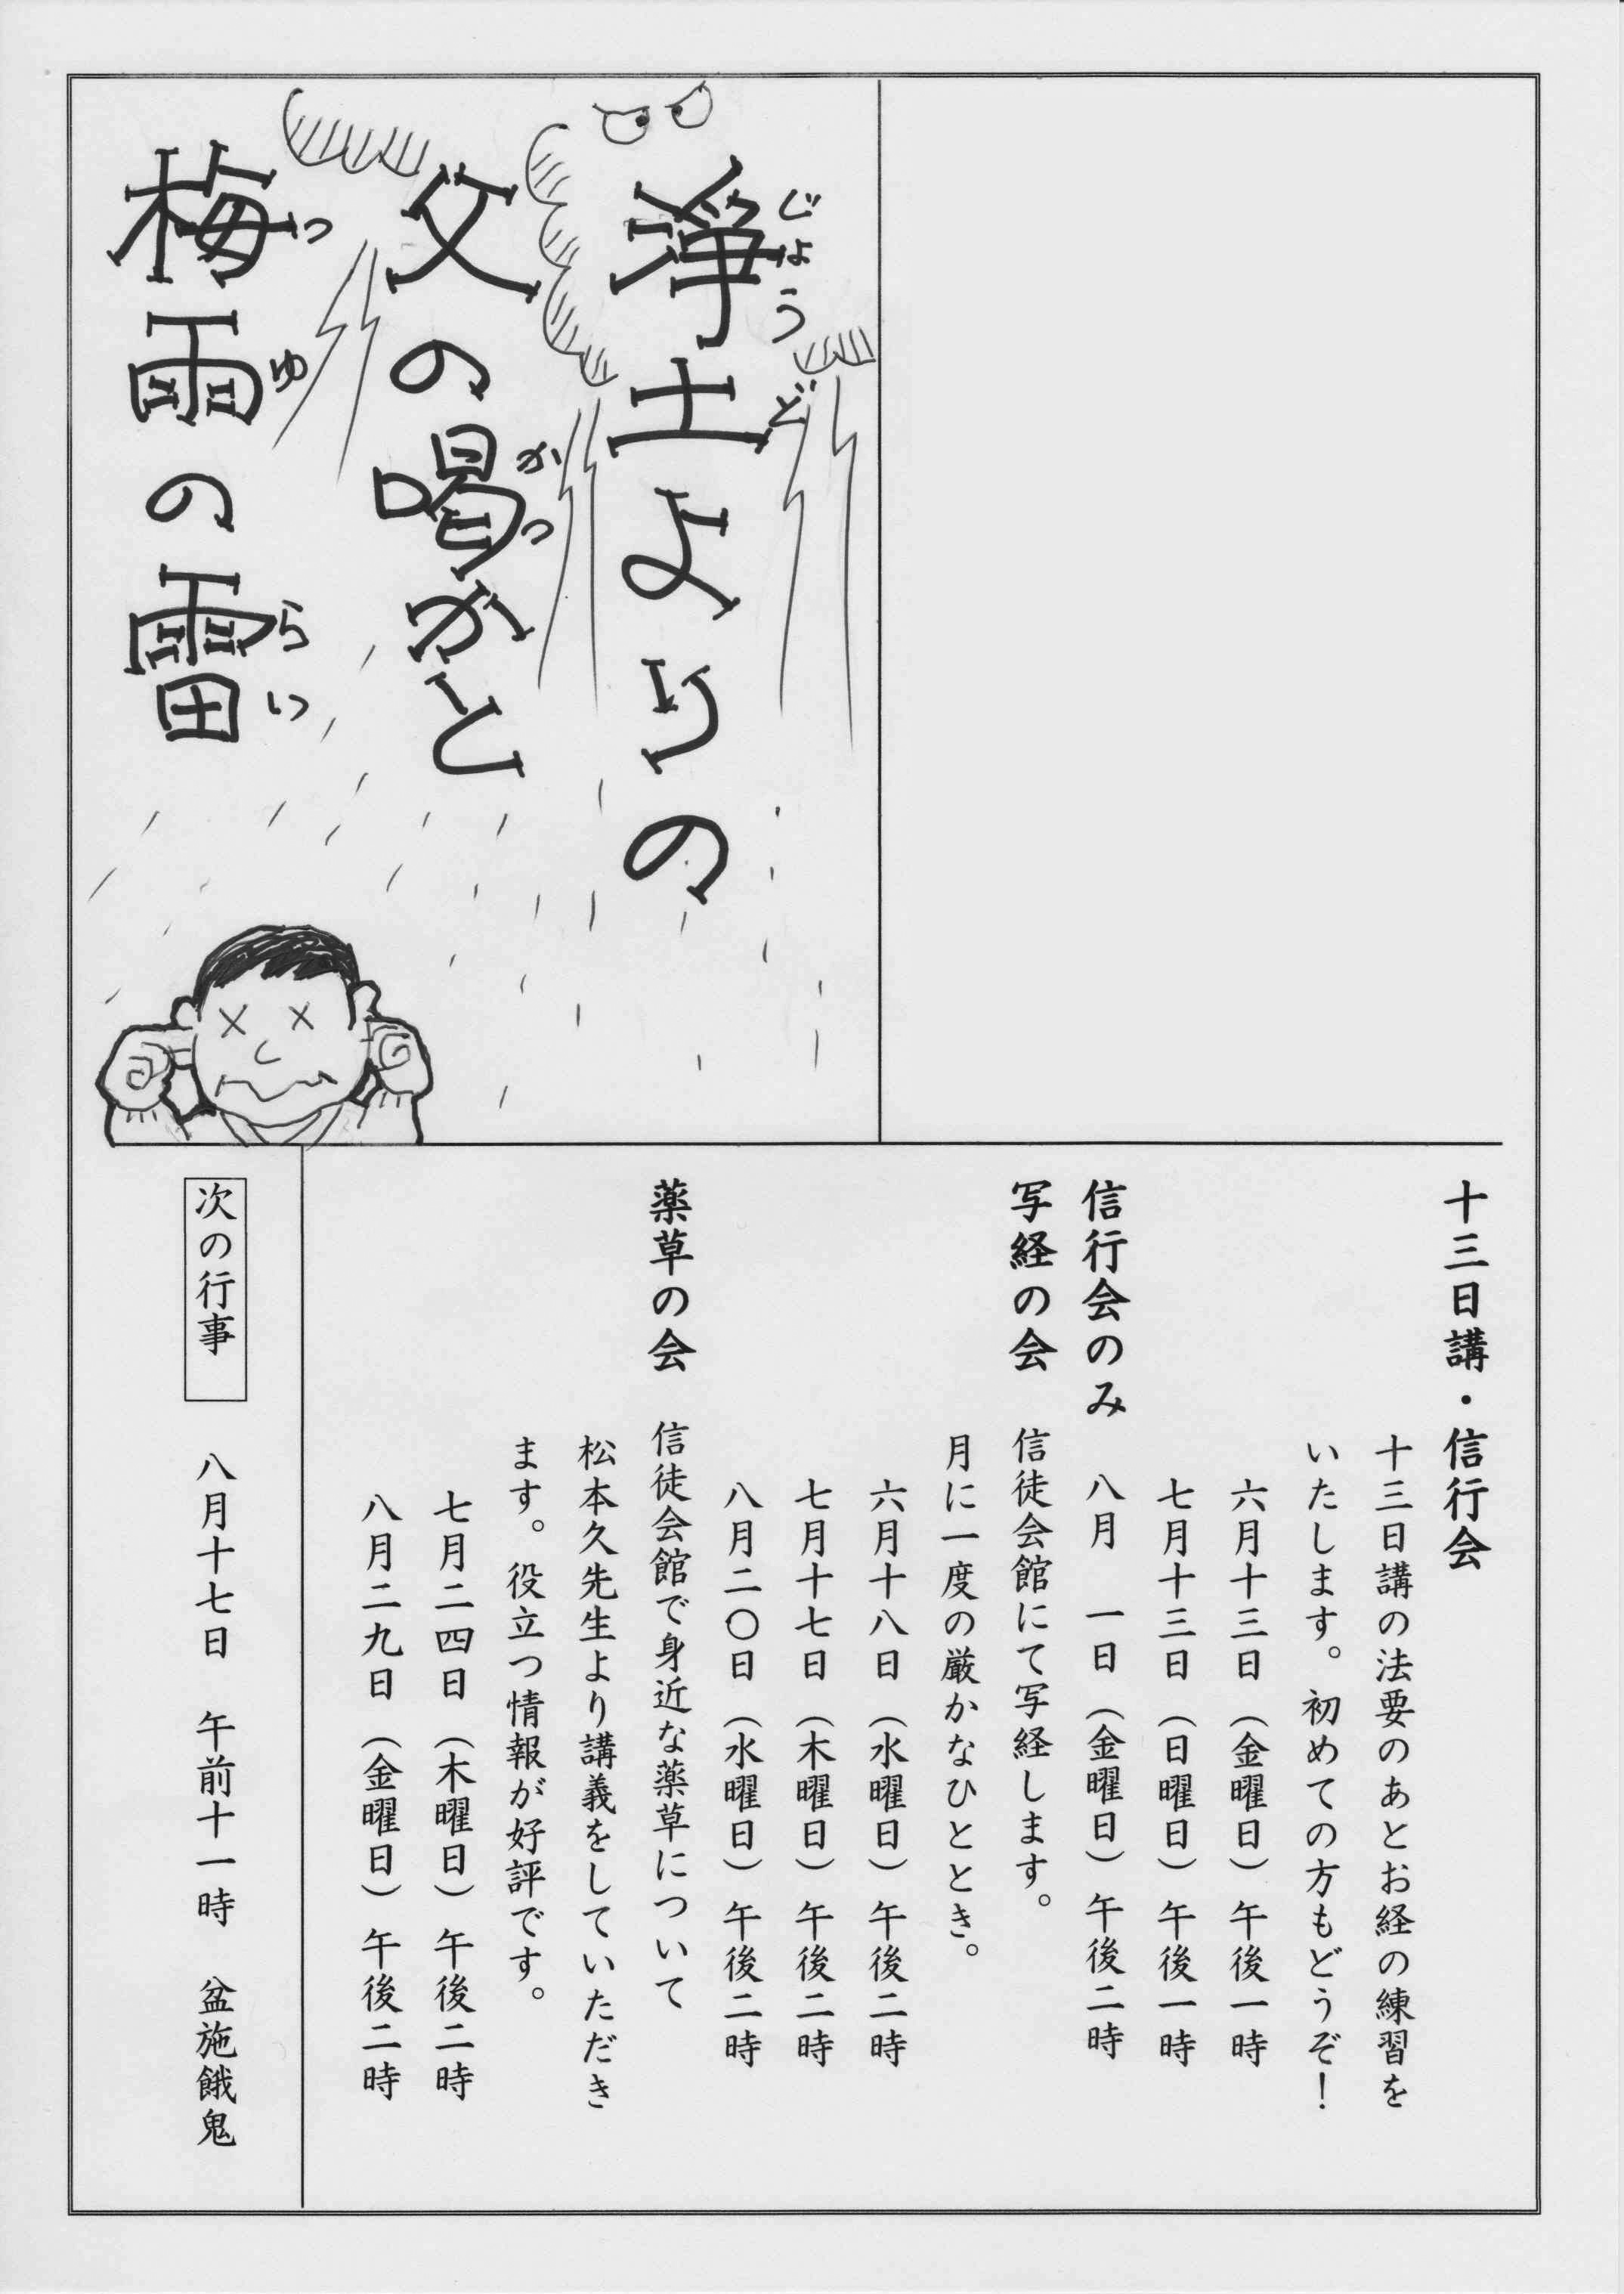 浄土よりの
じょうど
父の喝かと
かつ
梅雨の雷
つゆ
らい
十三日講・信行会
十三日講の法要のあとお経の練習を
いたします。初めての方もどうぞ！
六月十三日（金曜日）午後一時
七月十三日（日曜日）午後一時
信行会のみ 八月 一日（金曜日）午後二時
写経の会 信徒会館にて写経します。
月に一度の厳かなひととき。
六月十八日（水曜日）午後二時
七月十七日（木曜日）午後二時
八月二〇日（水曜日）午後二時
薬草の会 信徒会館で身近な薬草について
松本久先生より講義をしていただき
ます。役立つ情報が好評です。
七月二四日（木曜日）午後二時
八月二九日（金曜日）午後二時
次の行事 八月十七日 午前十一時 盆施餓鬼